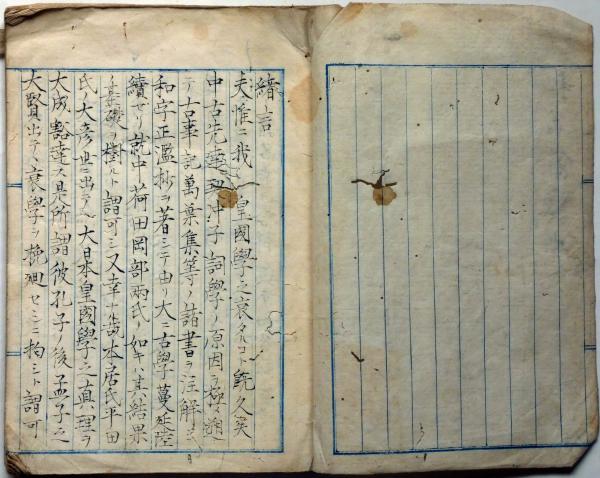 緒言
夫惟ニ我 皇國學之衰タルコト既久矣
中古先達 沖子詞學ノ原因ヲ極
テ古事記萬葉集等ノ諸書ヲ注解シ
和字正濫抄ヲ著ミテ由リ大ニ古學蔓延陸
續セリ就中荷田岡部兩氏ノ如キハ其結果
基礎ヲ樹ルト謂可ミ又幸ナル哉本居氏平田
氏ノ大彦世ニ出テ 大日本皇國學之真理ヲ
大成豁達ス是所謂彼孔子ノ後孟子之
大賢出テ、衰學ヲ挽廻セシニ ミト謂可